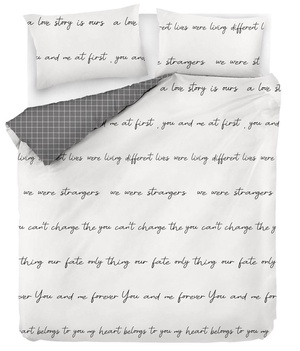 a love story is ours a love
different lives were living different l
you and me at first , you and
we were strangers we were st
a love story is ours a love
and me at first , you and me at first
living different lives were living different lives were
we were strangers we were strangers we were strangers
you can't change the you can't change the you can't change
thing our fate only thing our fate only thing our fate
ever You and me forever You and me forever You and me
heart belongs to you my heart belongs to you my heart